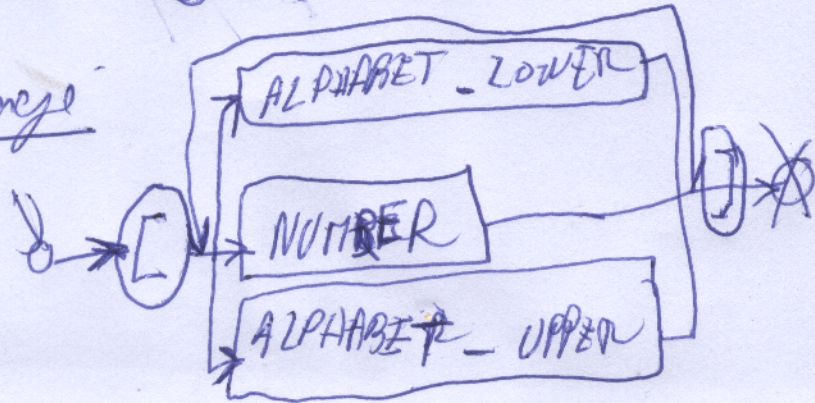 ALPHABET_LOWER
[
NUMBER
]
ALPHABET_UPPER